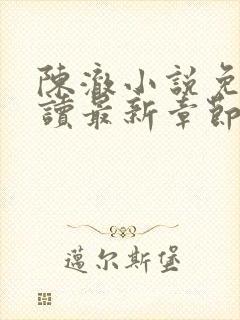 陳澈小說免
讀最新章節
邁尔斯堡